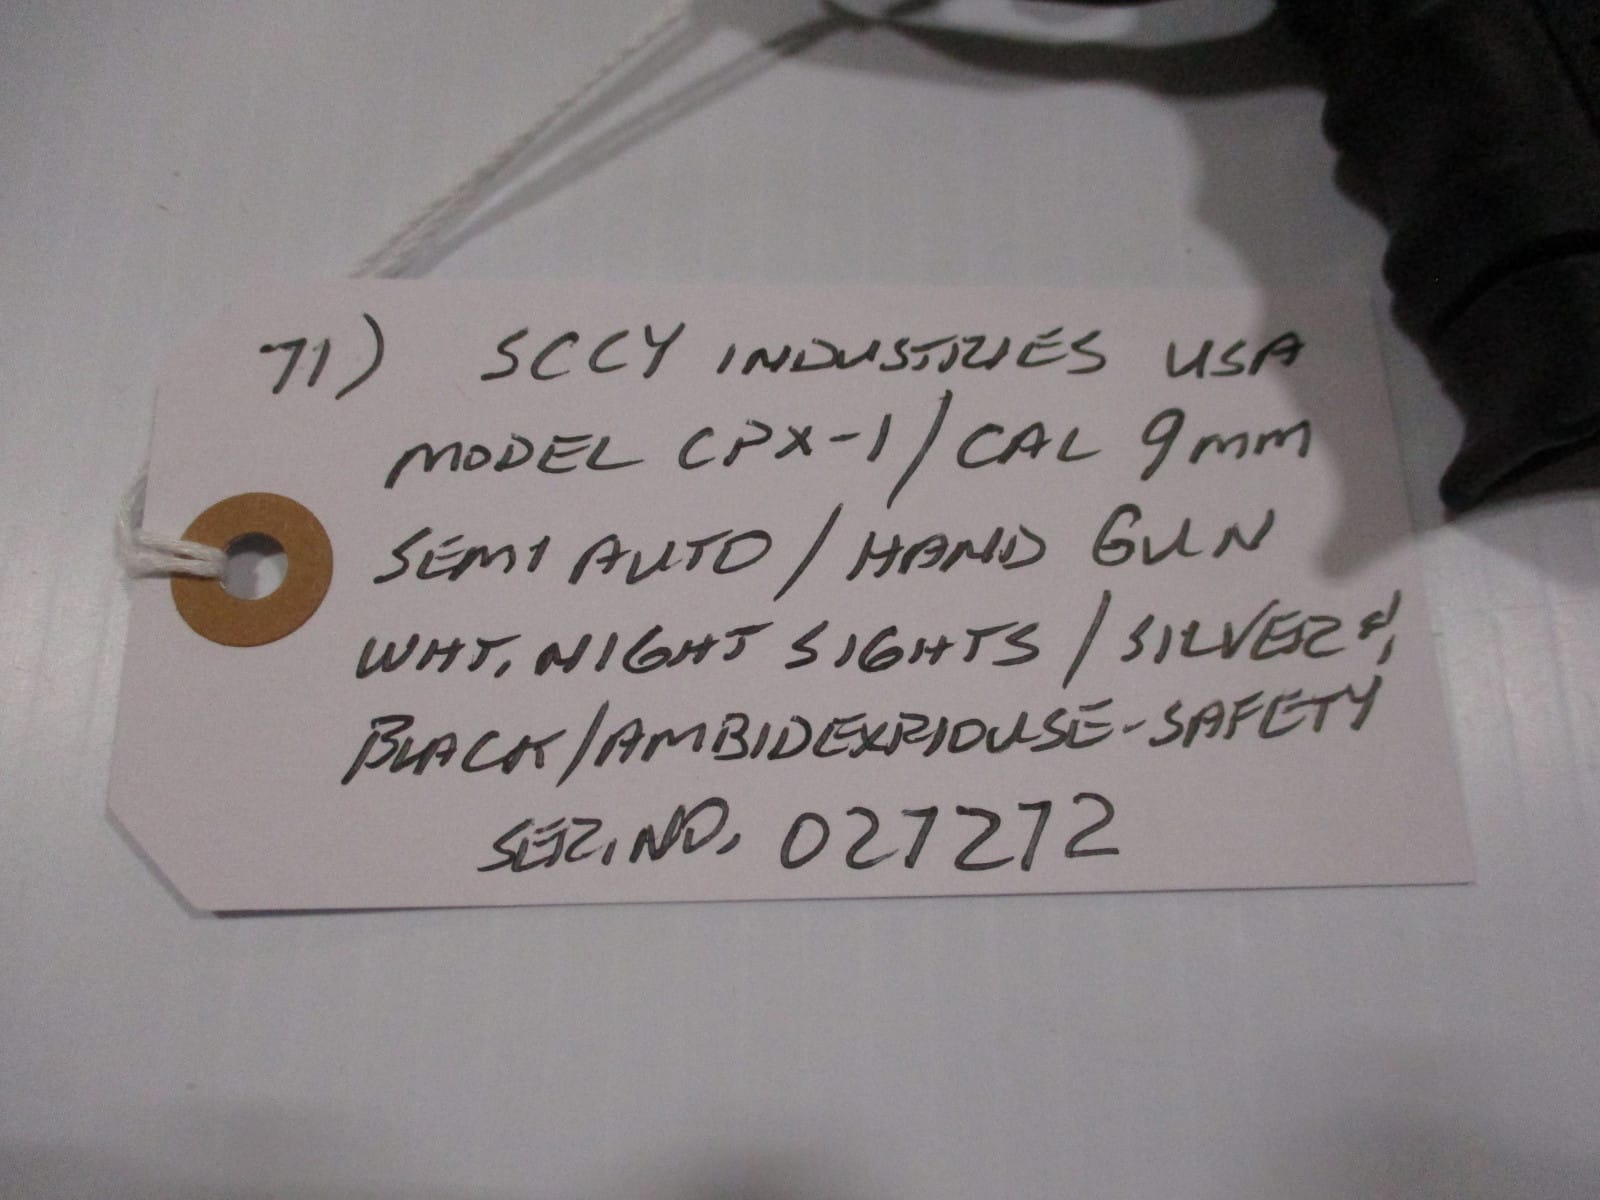 71) SCCY INDUSTRIES USA
MODEL CPX-1/CAL 9mm
SEMI AUTO/HAND GUN
WHT. NIGHT SIGHTS/SILVER &
BLACK/AMBIDEXRIOUSE-SAFETY
SER. NO. 027272